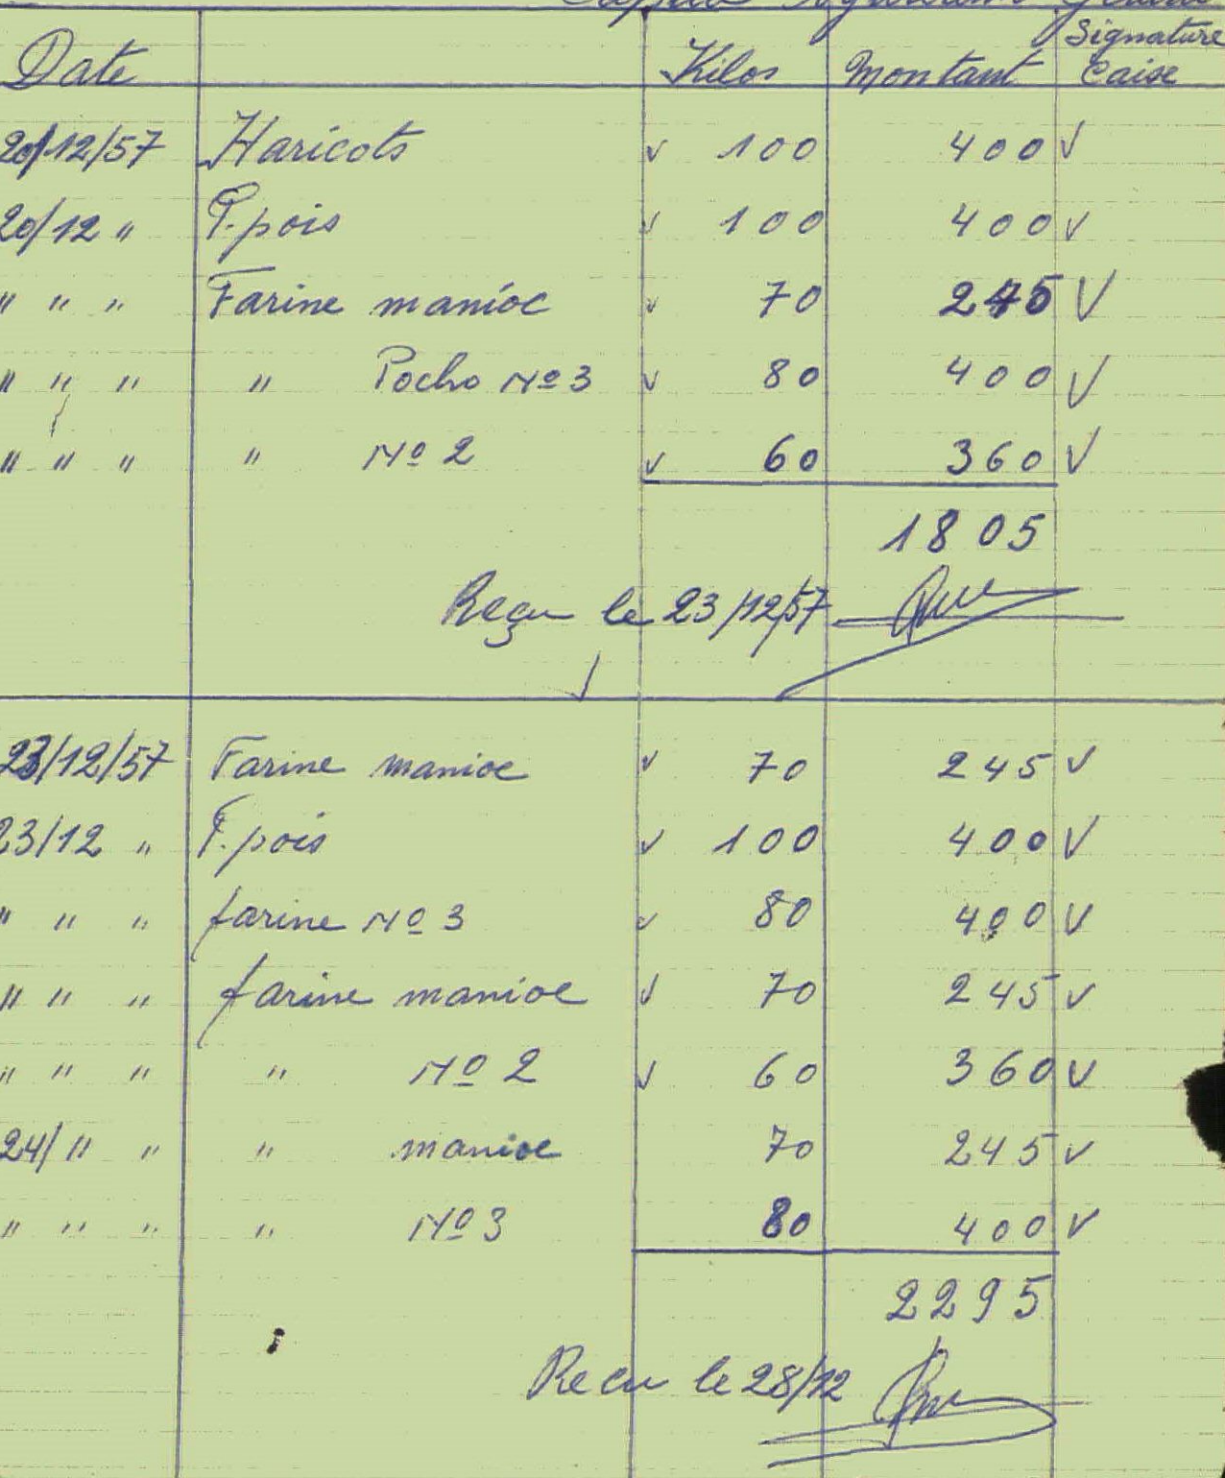 Date Kilos Montant Signature Caise
20/12/57 Haricots v 100 400 v
20/12 " P. pois v 100 400 v
" " " Farine manioc v 70 245 v
" " " " Pocho No 3 v 80 400 v
" " " " No 2 v 60 360 v
1805
Reçu le 23/12/57
23/12/57 Farine manioc v 70 245 v
23/12 " P. pois v 100 400 v
" " " farine No 3 v 80 400 v
" " " farine manioc v 70 245 v
" " " " No 2 v 60 360 v
24/ " " " manioc 70 245 v
" " " " No 3 80 400 v
2295
Recu le 28/12